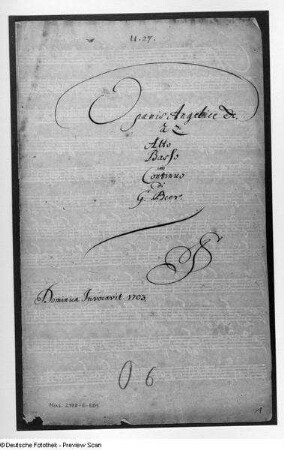 O panis Angelice &c.
à 2
Alto
Basso
con
Continuo
Di
G. Beer.
Dominica Invocavit 1703
O 6
©Deutsche Fotothek - Preview Scan